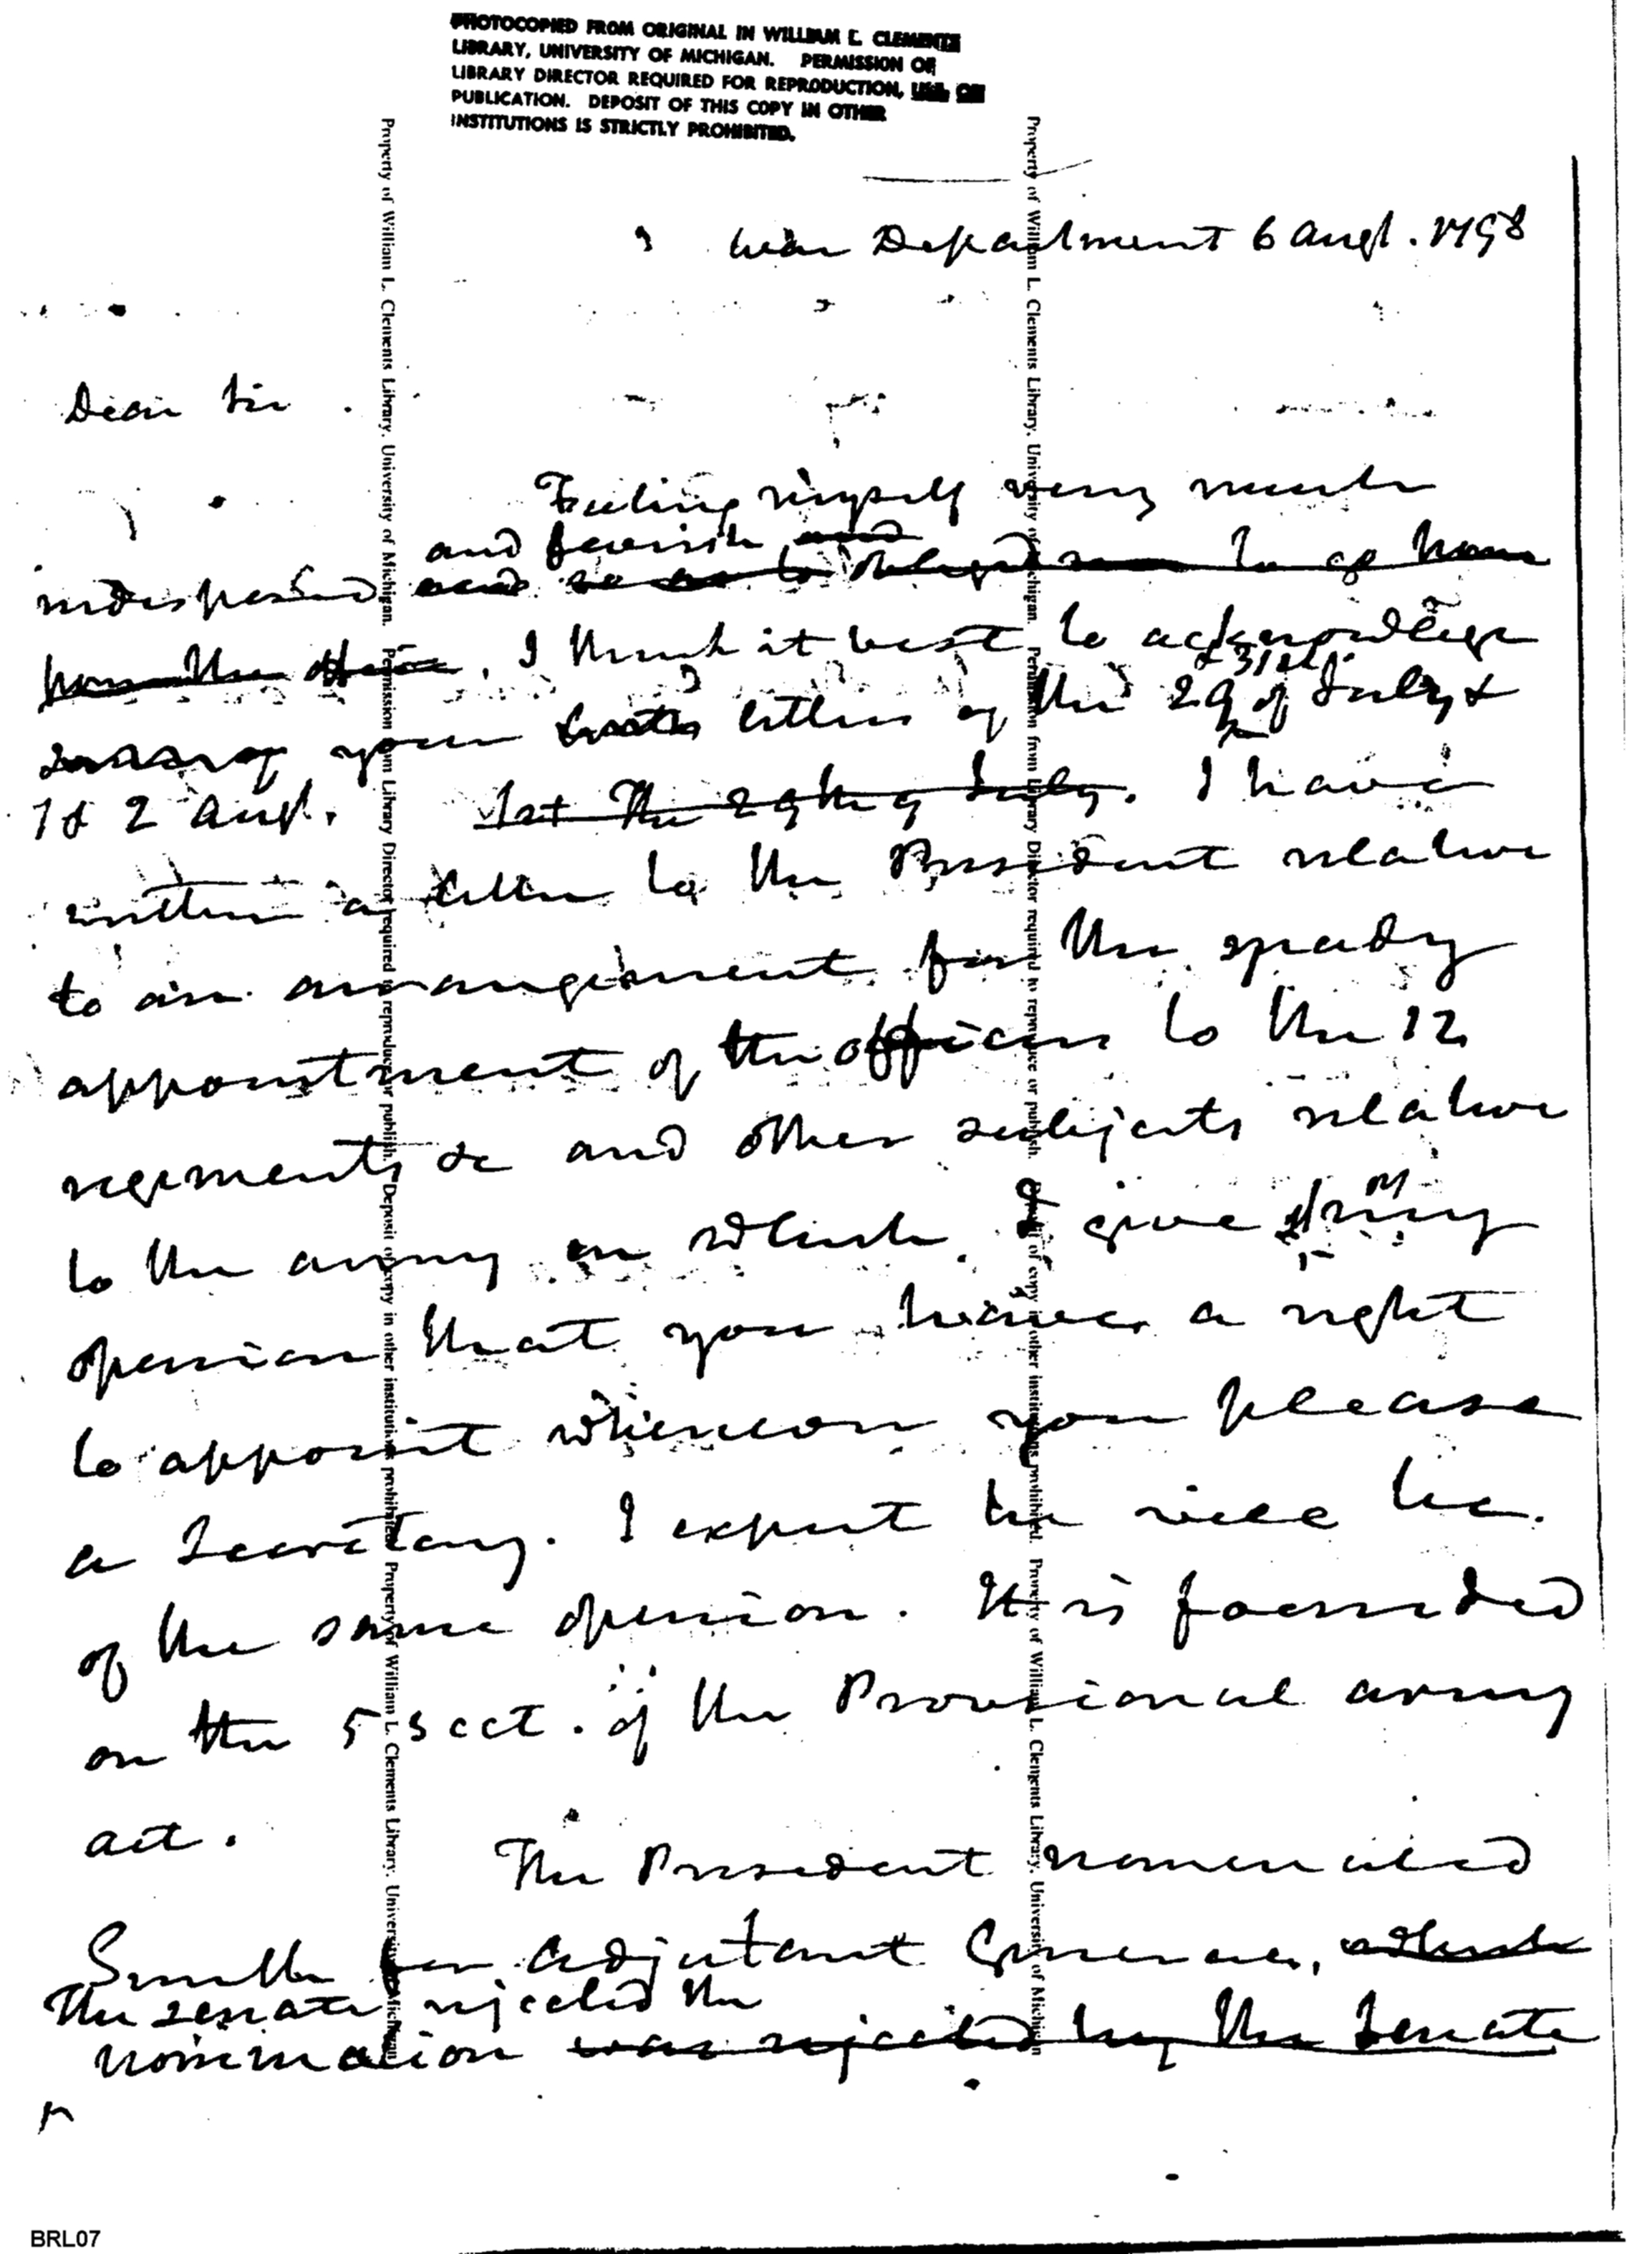 PHOTOCOPIED FROM ORIGINAL IN WILLIAM L. CLEMENTS
LIBRARY, UNIVERSITY OF MICHIGAN. PERMISSION OF
LIBRARY DIRECTOR REQUIRED FOR REPRODUCTION, USE OR
PUBLICATION. DEPOSIT OF THIS COPY IN OTHER
INSTITUTIONS IS STRICTLY PROHIBITED.
War Department 6 Augt. 1798
Dear Sir
Feeling myself very much
and feverish and
indisposed and so as to obliged me to go home
from the office, I think it best to acknowledge
& 31st
your letters of the 29 of July &
1 & 2 Augt. 1st The 29th of July. I have
written a letter to the President relative
to an arrangement for the speedy
appointment of the officers to the 12
regiments &c and other subjects relative
to the army in which I give it my
opinion that you have a right
to appoint whenever you please
a Secretary. I expect he will be
of the same opinion. It is founded
on the 5 sect. of the Provisional army
act.
The President nominated
Smith for Adjutant General, which
The senate rejected the
nomination was rejected by the Senate
Property of William L. Clements Library, University of Michigan. Permission from Library Director required to reproduce or publish. Deposit of copy in other institutions prohibited. Property of William L. Clements Library, University of Michigan
Property of William L. Clements Library, University of Michigan. Permission from Library Director required to reproduce or publish. Deposit of copy in other institutions prohibited. Property of William L. Clements Library, University of Michigan
BRL07